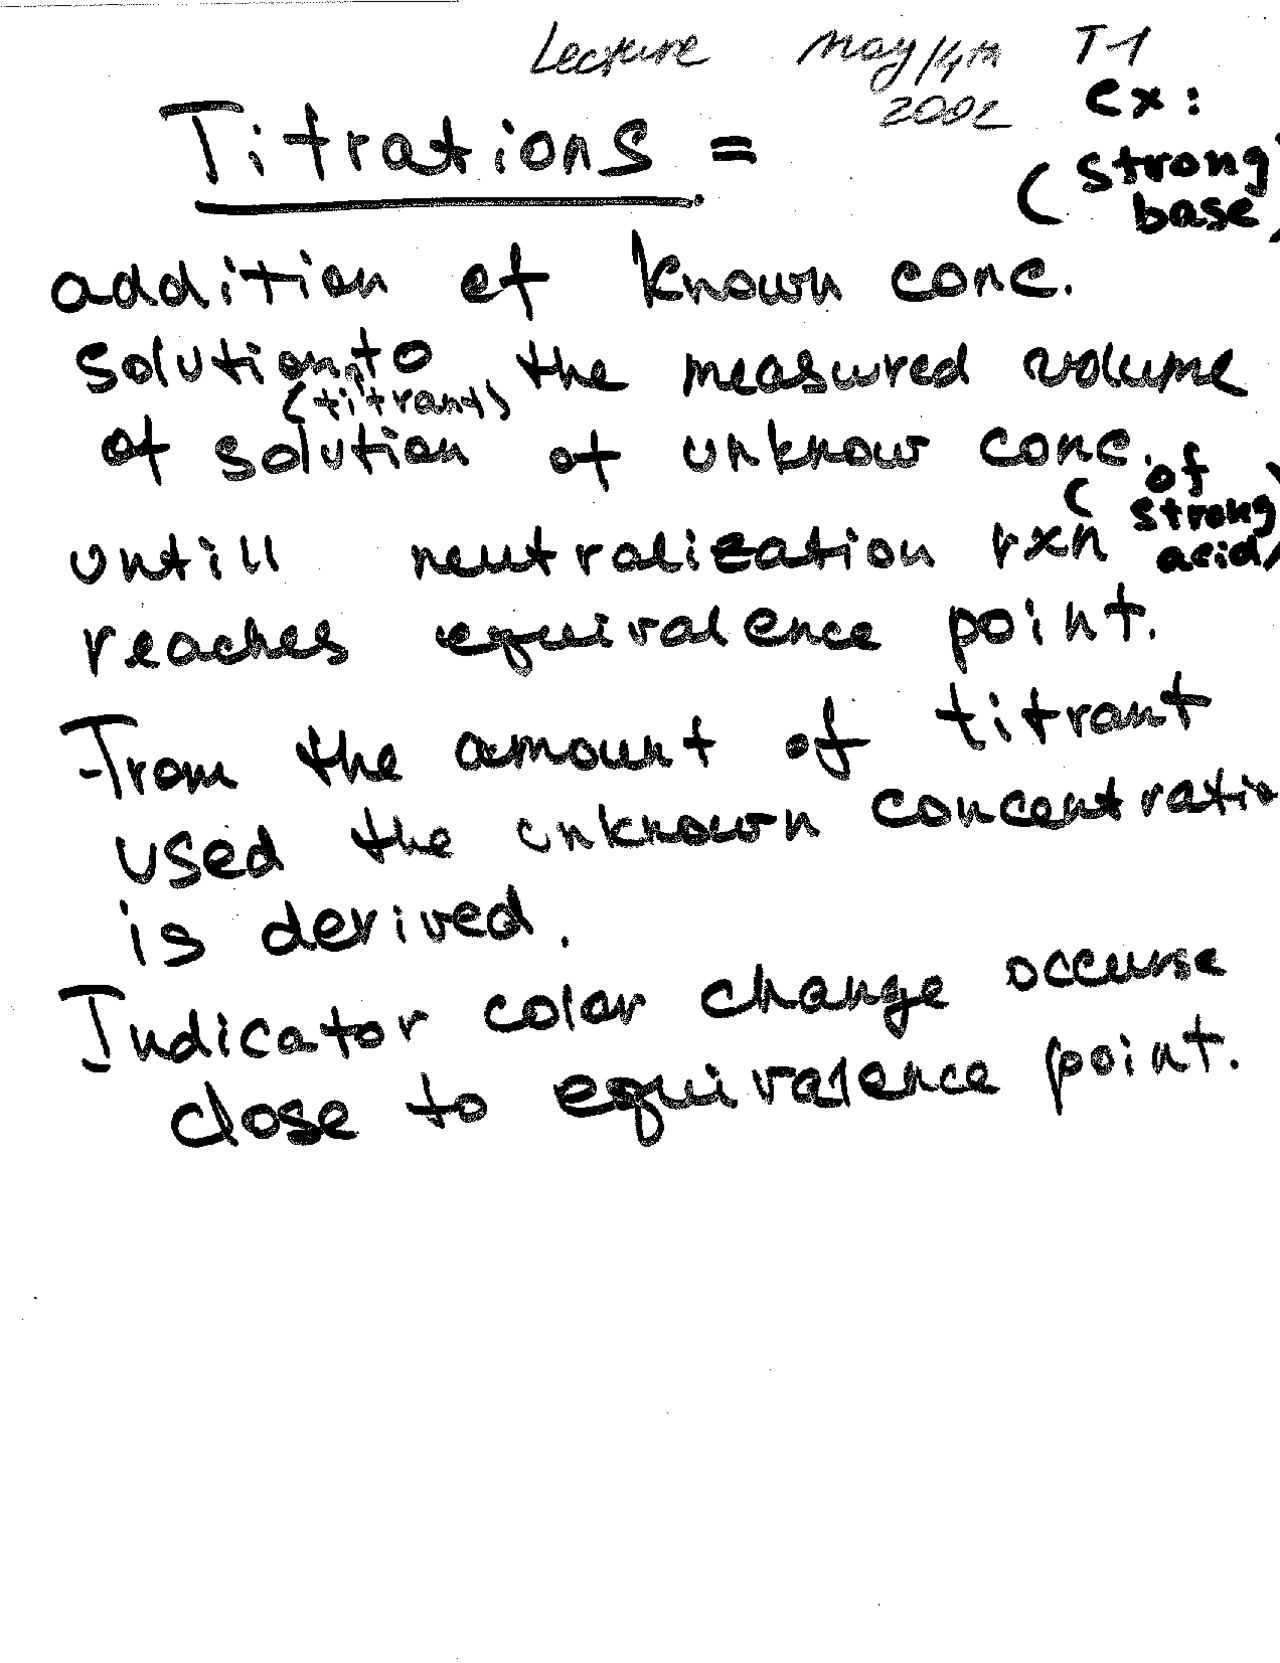 Lecture May 14th T-1
2002
ex:
Titrations =
(strong
base)
addition of known conc.
solution to the measured volume
(titrant)
of solution of unknow conc.
(of
strong
acid)
untill neutralization rxn
reaches equivalence point.
From the amount of titrant
used the unknown concentratio
is derived.
Indicator color change occurse
close to equivalence point.